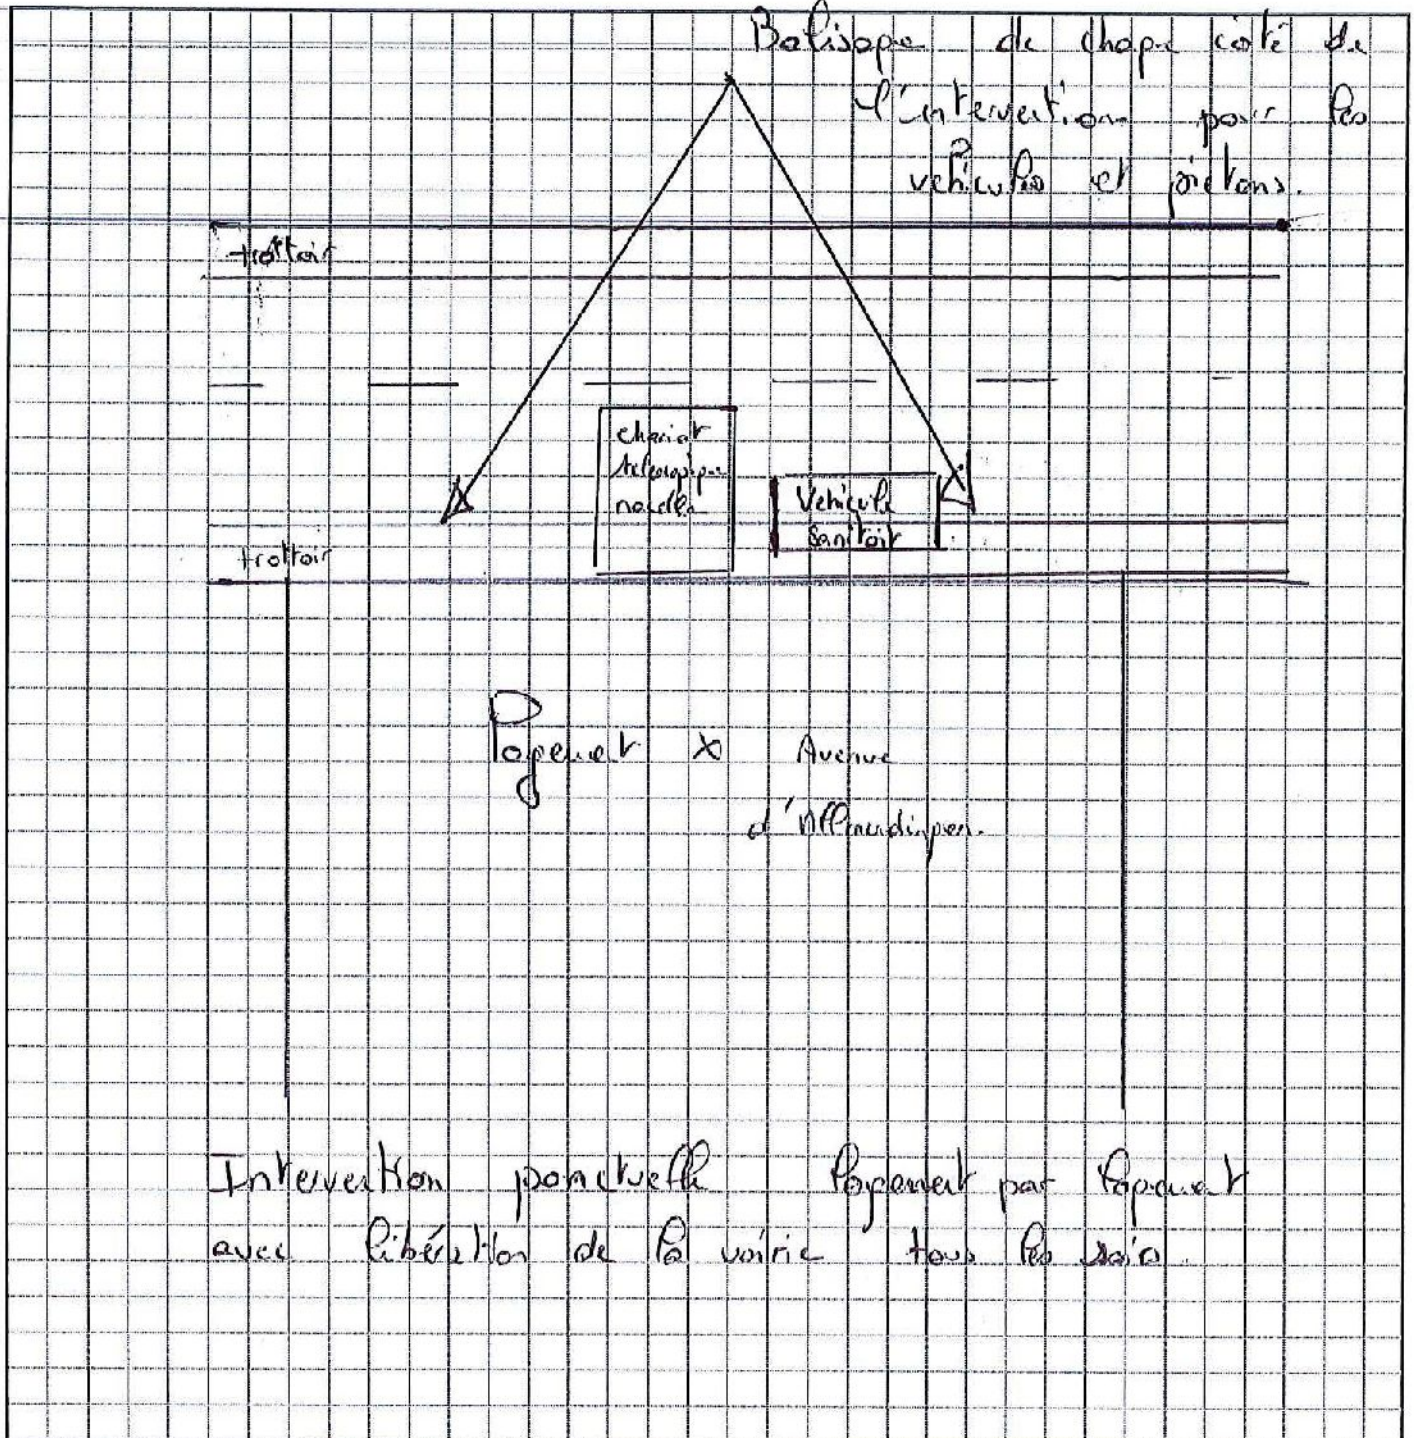 Balisage de chaque côté de
l'intervention pour les
vehicules et piétons.
trottoir
chariot
telescopique
nacelle
Vehicule
Sanitair
trottoir
logement X Avenue
d'
Intervention ponctuelle logement par logement
avec libération de la voirie tous les soirs.